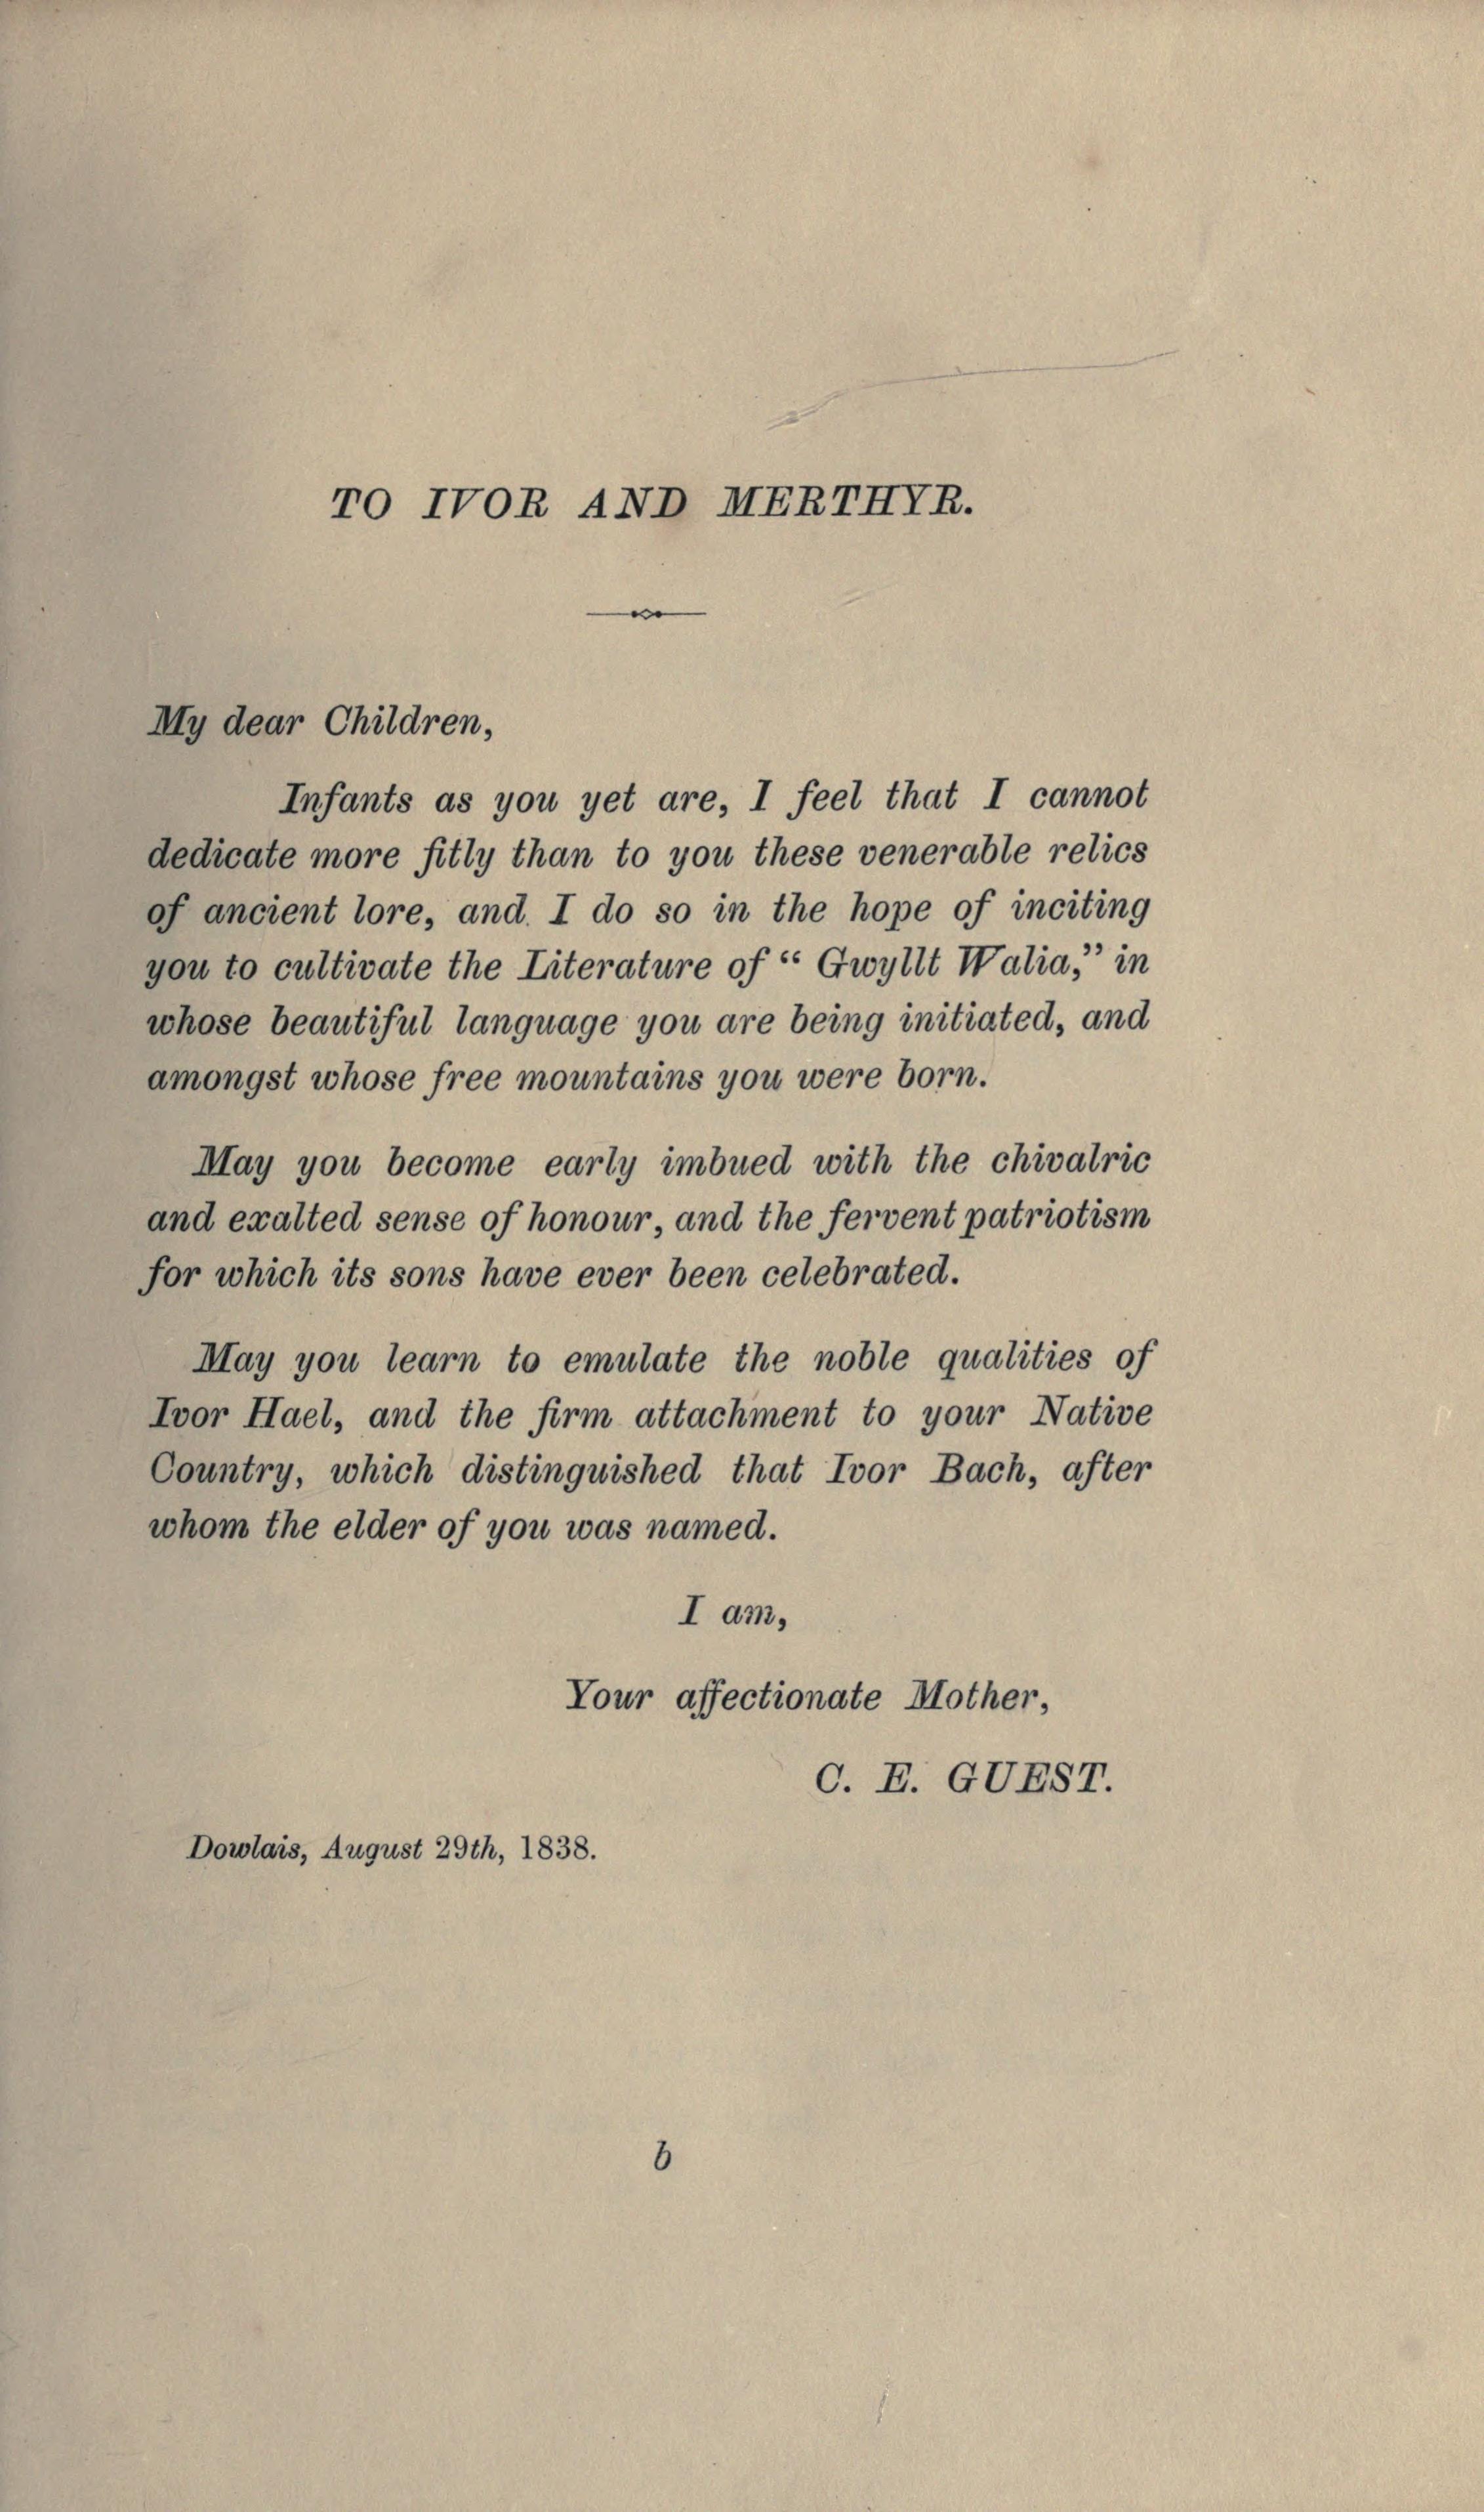 TO IVOR AND MERTHYR.
My dear Children,
Infants as you yet are, I feel that I cannot
dedicate more fitly than to you these venerable relics
of ancient lore, and I do so in the hope of inciting
you to cultivate the Literature of “ Gwyllt Walia,” in
whose beautiful language you are being initiated, and
amongst whose free mountains you were born.
May you become early imbued with the chivalric
and exalted sense of honour, and the fervent patriotism
for which its sons have ever been celebrated.
May you learn to emulate the noble qualities of
Ivor Hael, and the firm attachment to your Native
Country, which distinguished that Ivor Bach, after
whom the elder of you was named.
I am,
Your affectionate Mother,
C. E. GUEST.
Dowlais, August 29th, 1838.
b